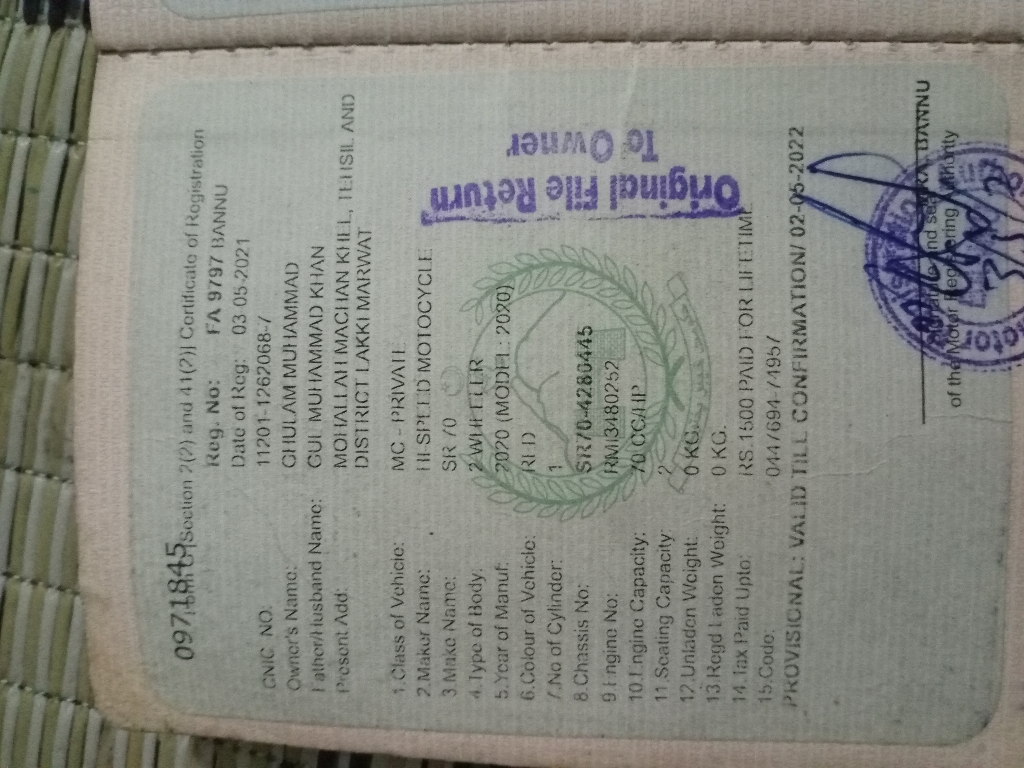 0971845
(Section 2(2) and 41(2)] Certificate of Registration
Reg. No: FA 9797 BANNU
Date of Reg: 03 05-2021
CNIC NO. 11201-1262068-7
Owner's Name: GHULAM MUHAMMAD
Father/Husband Name: GUL MUHAMMAD KHAN
Present Add: MOHALLAH MACHAN KHEL, TEHSIL AND
DISTRICT LAKKI MARWAT
1.Class of Vehicle: MC - PRIVATE
2.Maker Name: HI-SPEED MOTOCYCLE
3.Make Name: SR 70
4.Type of Body: 2 WHEELER
5.Year of Manuf: 2020 (MODEL: 2020)
6.Colour of Vehicle: RED
7.No of Cylinder: 1
8.Chassis No: SR70-4280445
9 Engine No: RMI3480252
10.Engine Capacity: 70 CC/HP
11 Seating Capacity: 2
12.Unladen Weight: 0 KG.
13 Regd Laden Weight: 0 KG.
14.Tax Paid Upto: RS.1500 PAID FOR LIFETIME
15.Code: 0447694-74957
PROVISIONAL: VALID TILL CONFIRMATION/ 02-05-2022
Original File Return
To Owner
BANNU
of the Motor Registering Authority